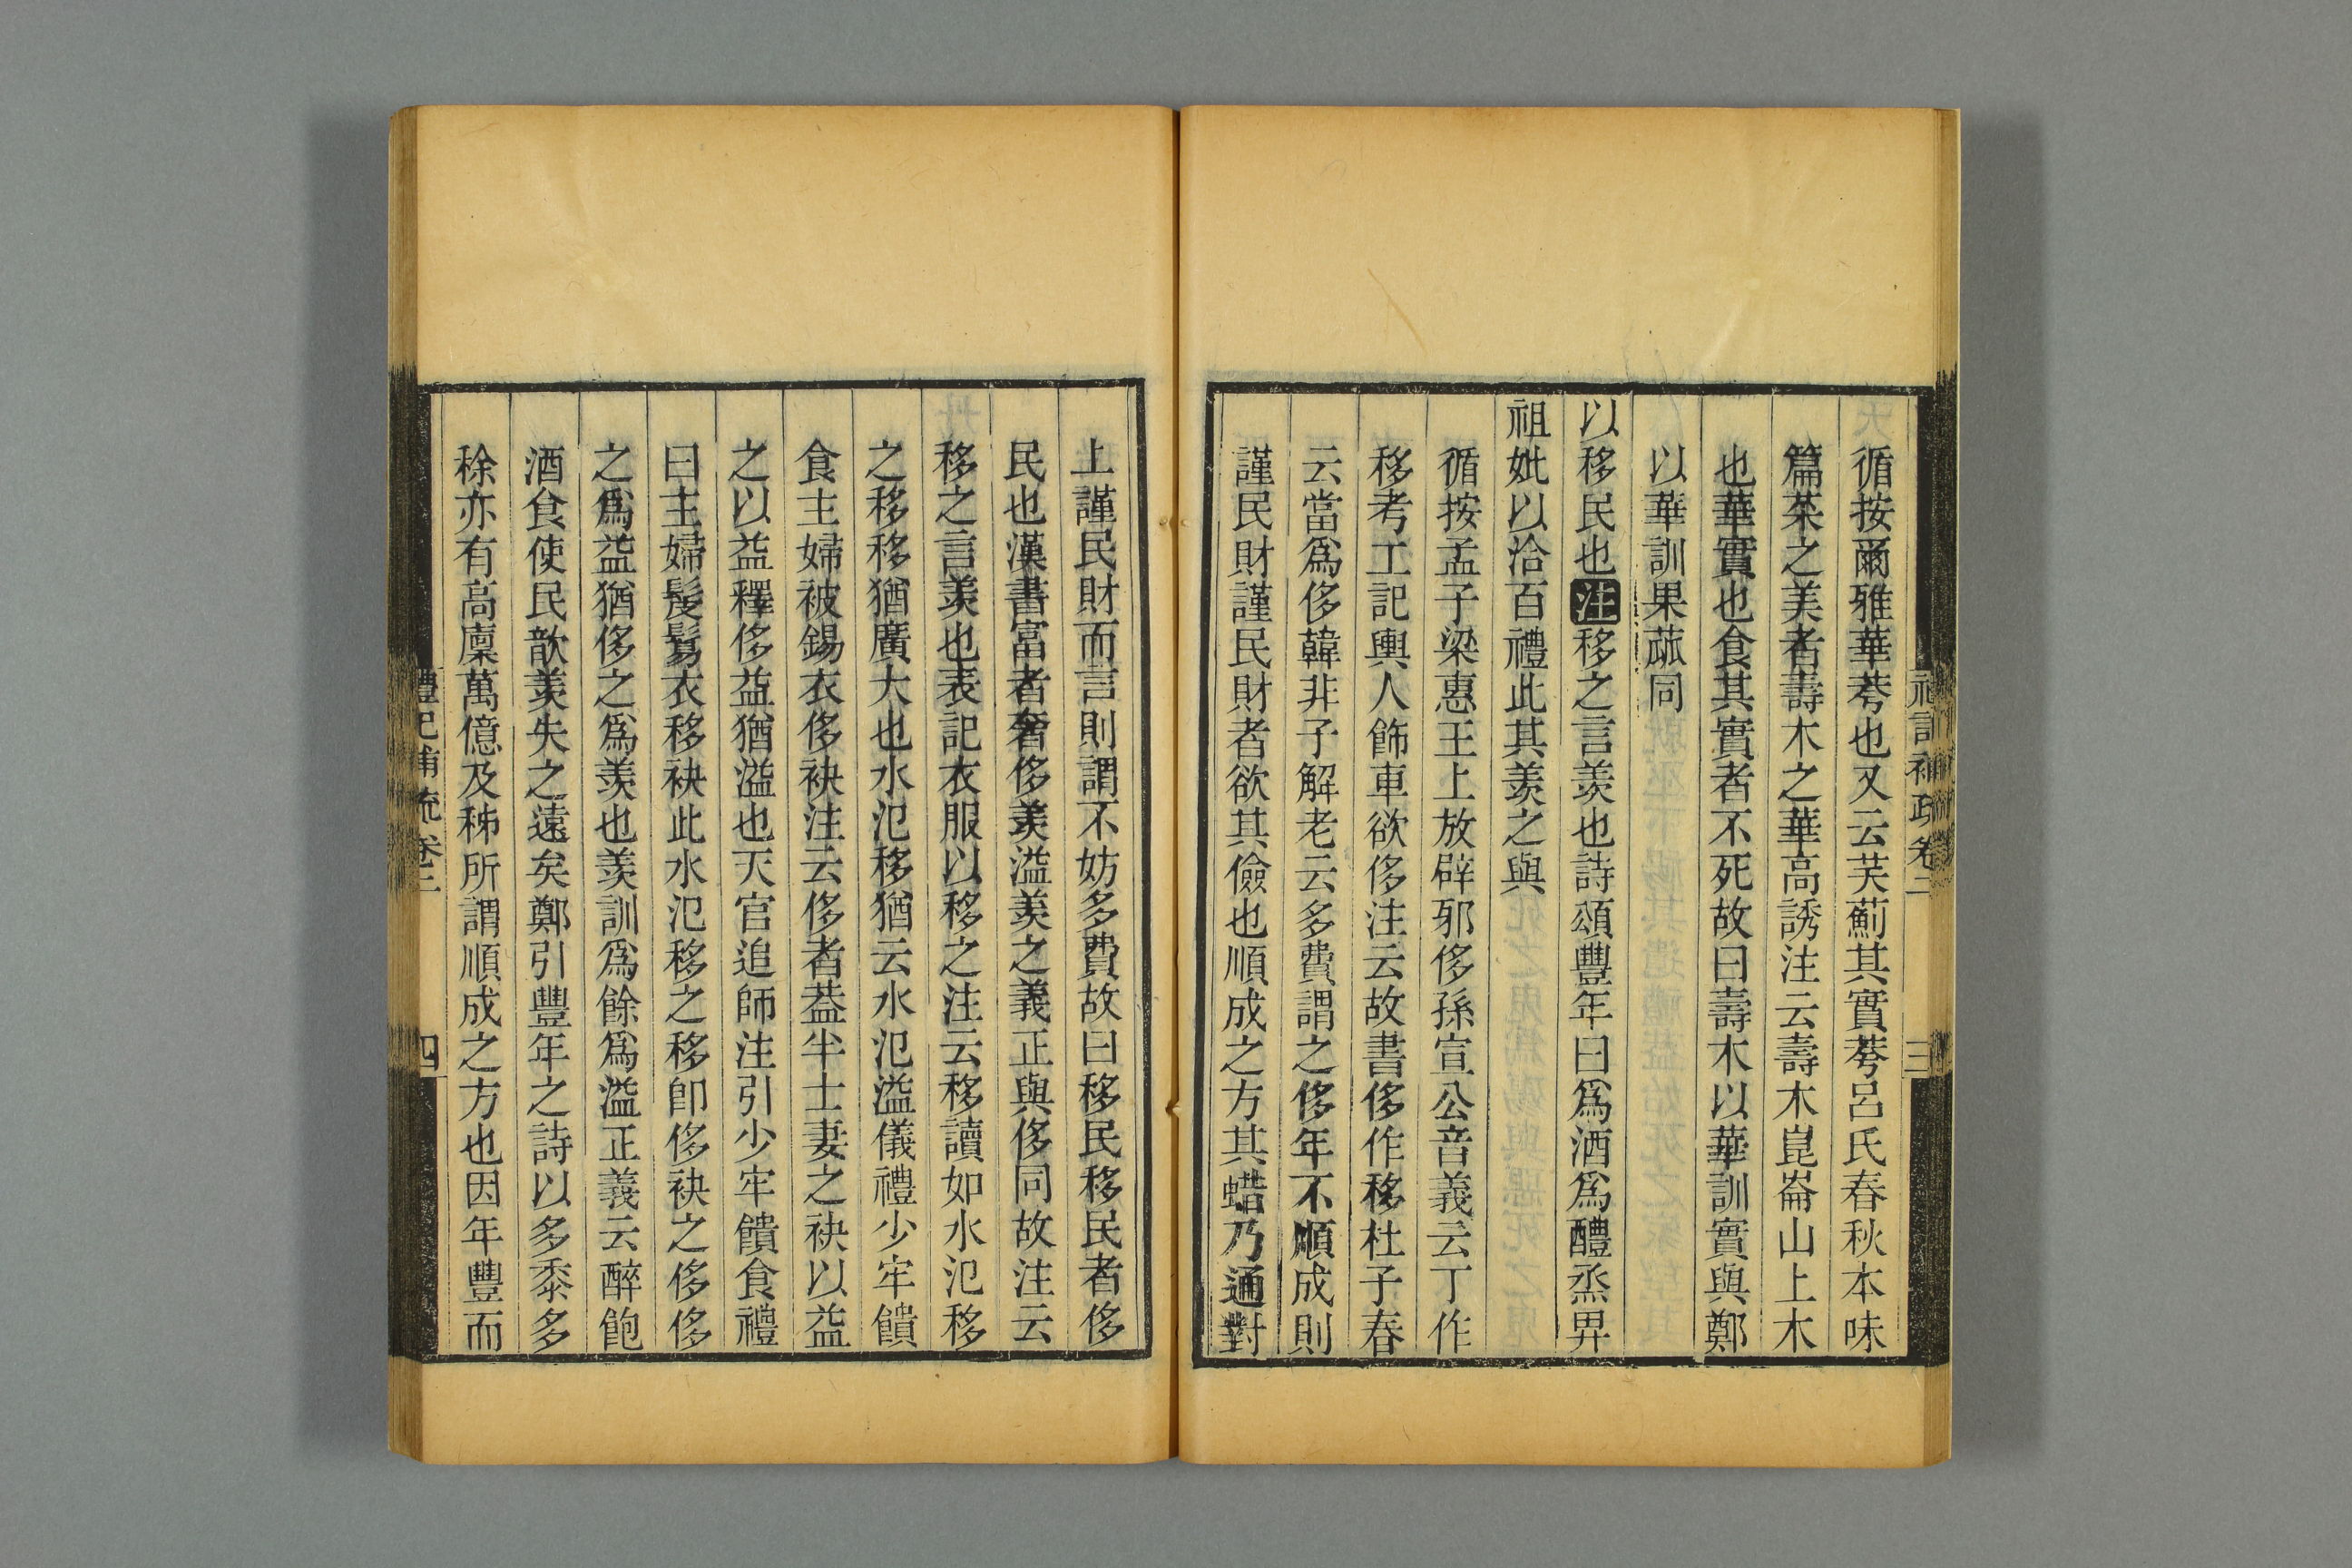 循按爾雅華荂也又云芺薊其實荂呂氏春秋本味
篇菜之美者壽木之華高誘注云壽木崑崙山上木
也華實也食其實者不死故曰壽木以華訓實與鄭
以華訓果蓏同
以移民也注移之言羨也詩頌豐年曰爲酒爲醴烝畀
祖妣以洽百禮此其羨之與
循按孟子梁惠王上放辟邪侈孫宣公音義云丁作
移考工記輿人飾車欲侈注云故書侈作移杜子春
云當爲侈韓非子解老云多費謂之侈年不順成則
謹民財謹民財者欲其儉也順成之方其蜡乃通對
三
上謹民財而言則謂不妨多費故曰移民移民者侈
民也漢書富者奢侈羨溢羨之義正與侈同故注云
移之言羨也表記衣服以移之注云移讀如水氾移
之移移猶廣大也水氾移猶云水氾溢儀禮少牢饋
食主婦被錫衣侈袂注云侈者葢半士妻之袂以益
之以益釋侈益猶溢也天官追師注引少牢饋食禮
曰主婦髲鬄衣移袂此水氾移之移卽侈袂之侈侈
之爲益猶侈之爲羨也羨訓爲餘爲溢正義云醉飽
酒食使民歆羨失之遠矣鄭引豐年之詩以多黍多
稌亦有高廩萬億及秭所謂順成之方也因年豐而
禮記補疏卷三
四